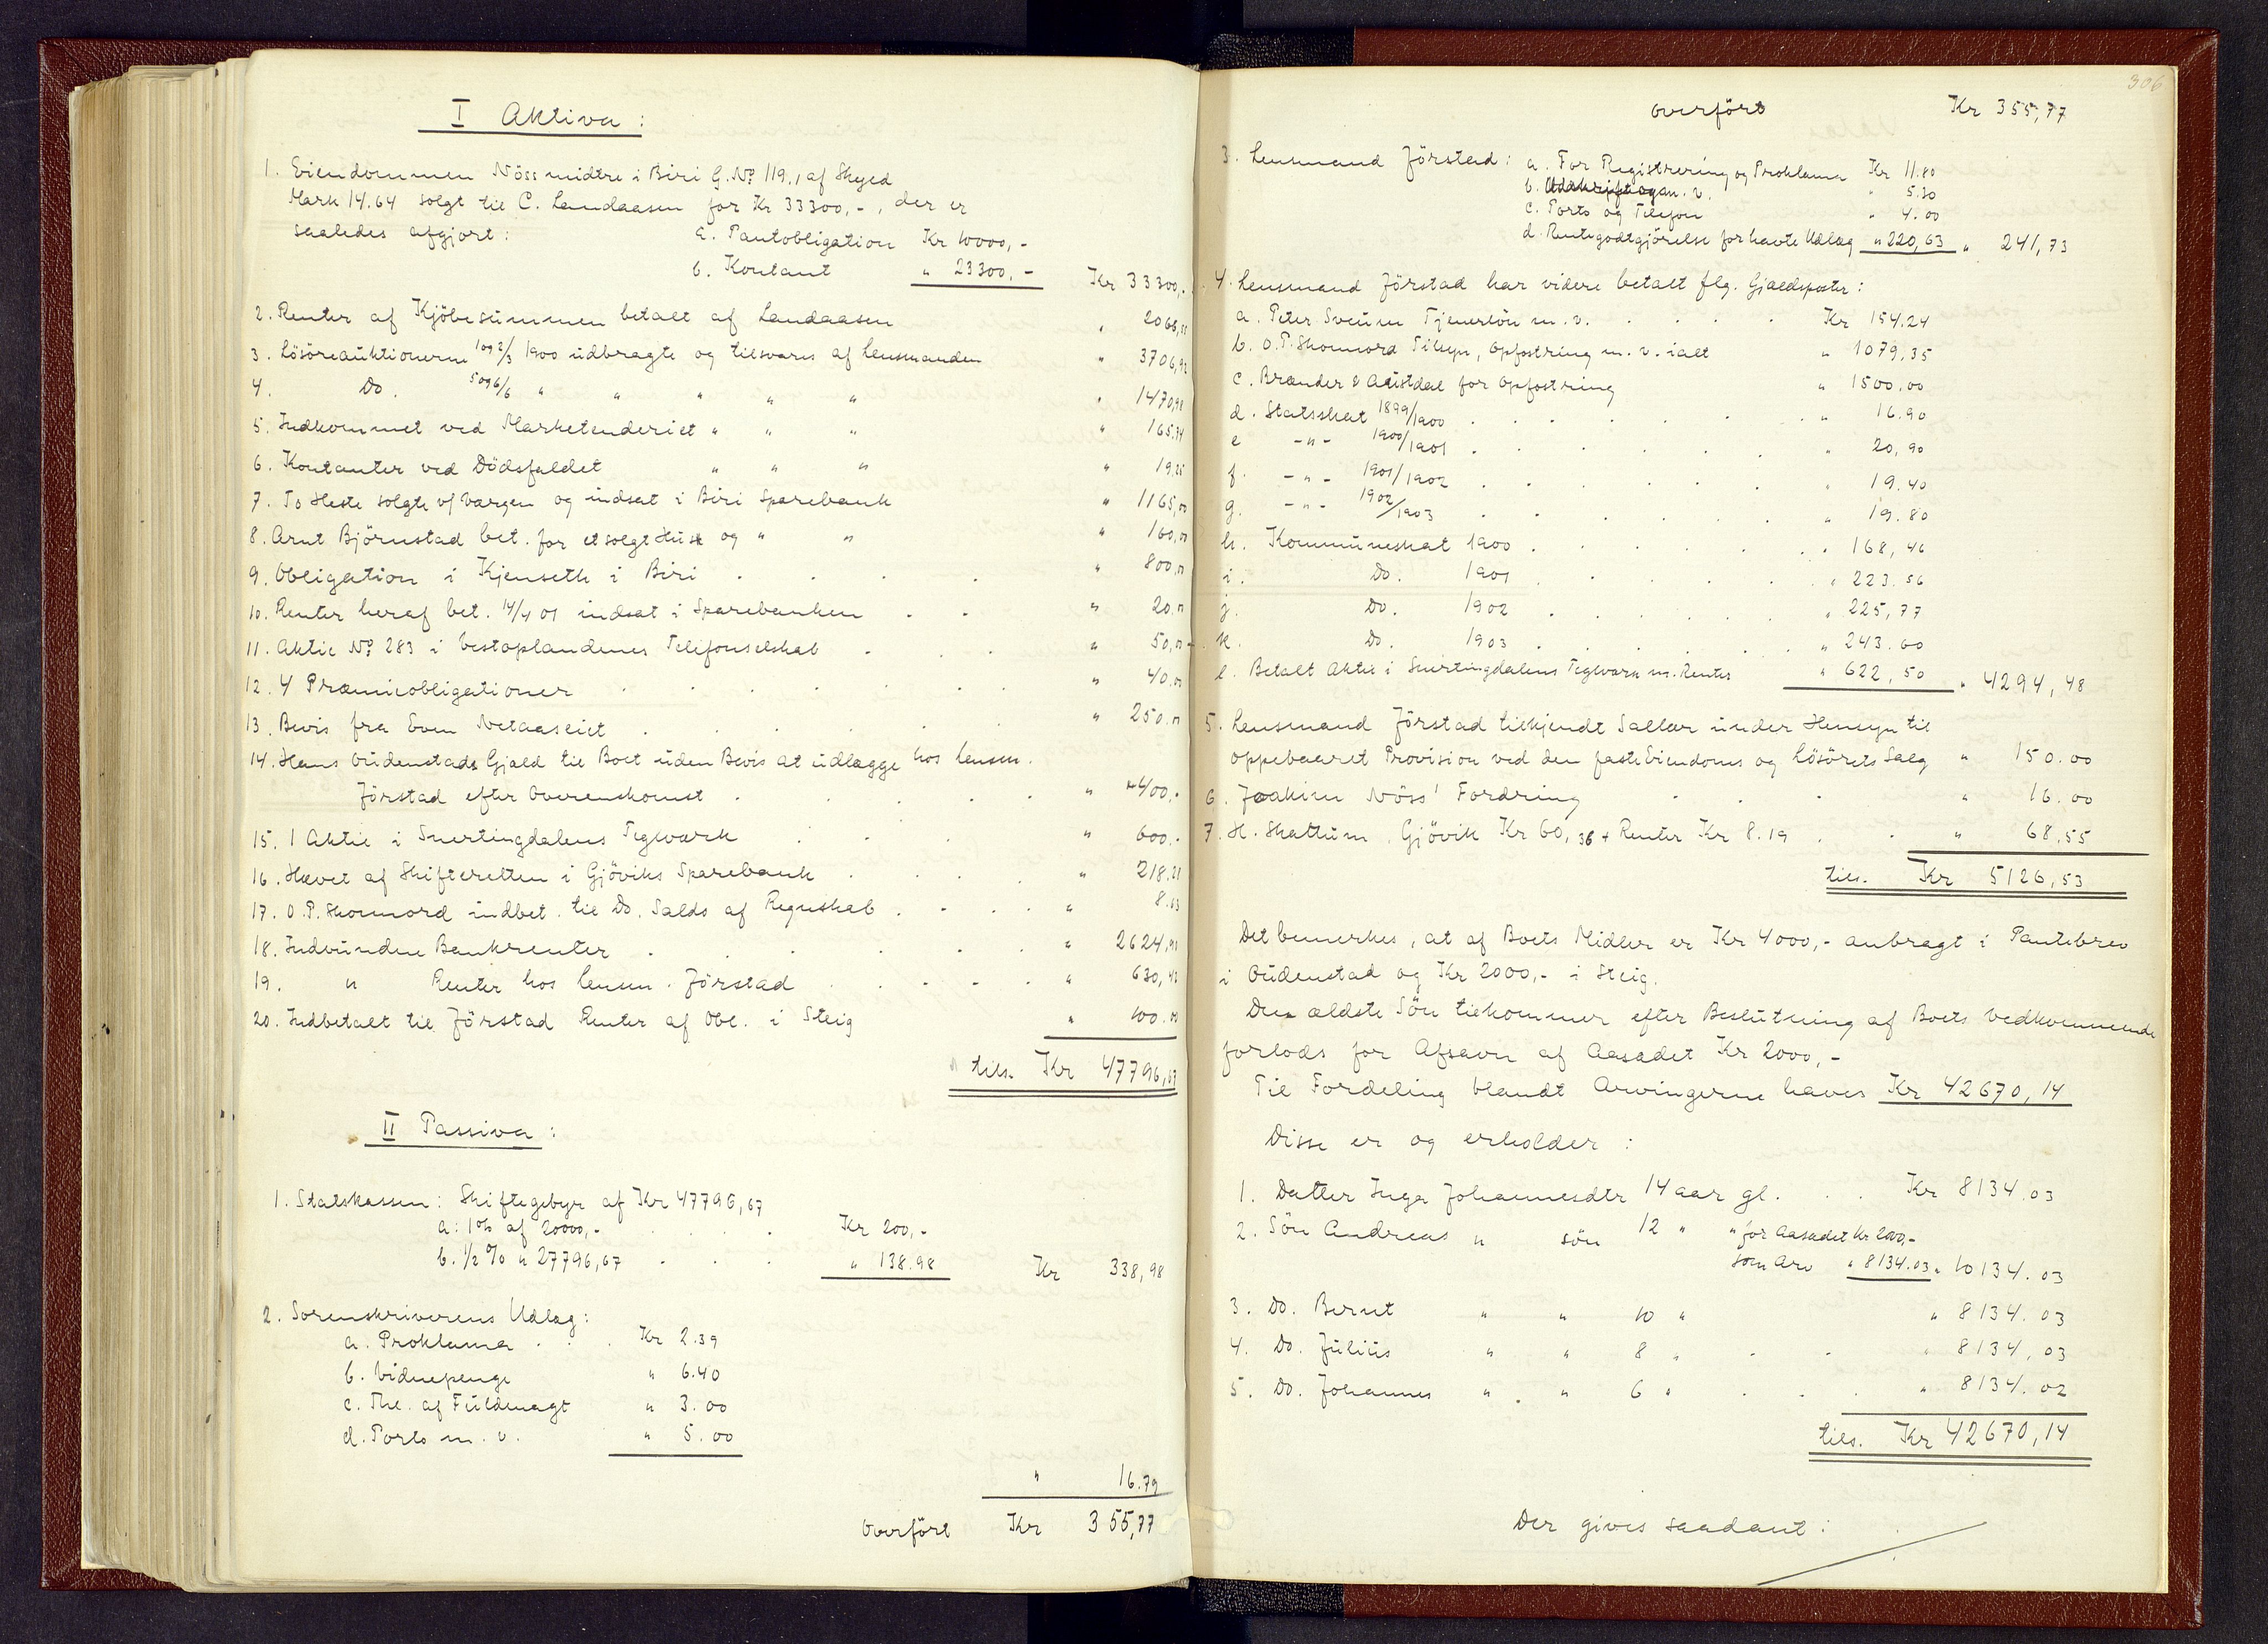 I Aktiva:
1. Eiendommen Nöss midtre i Biri G.No 119,1 af Skyld
Mark 14.64 solgt til C. Landaasen for Kr 33300,-, der er
saaledes afgjort: a. Pantobligation Kr 10000,-
b. Kontant " 23300,- Kr 33300,-
2. Renter af Kjöbesummen betalt af Landaasen " 2066,
3. Lösöreauktionerne 1 og 2/3 1900 udbragte og tilsvares af Lensmanden " 3706,92
4. Do. 5 og 6/6 " " " " " " 1470,98
5. Indkommet ved Marketenderiet " " " " 165,74
6. Kontanter ved Dödsfaldet " " " " 19,25
7. To Heste solgte v/ Værgen og indsat i Biri Sparebank " 1165,00
8. Arnt Björnstad bet. for et solgt Hus og " " " 160,00
9. Obligation i Kjenseth i Biri " 800,00
10. Renter heraf bet. 14/4 01 indsat i Sparebanken " 20.00
11. Aktie No 283 i Vestoplandenes Telefonselskab " 50,00
12. 4 Præmieobligationer " 40.00
13. Bevis fra Even Netaaseiet " 250.00
14. Hans Oudenstads Gjæld til Boet uden Bevis at udlægge hos Lensm.
Förstad efter Overenskomst " 400,-
15. 1 Aktie i Snertingdalens Teglværk " 600.-
16. Hævet af Skifteretten i Gjöviks Sparebank " 218.21
17. O.P. Skonnord indbet. til Do. Saldo af Regnskab " 8.13
18. Indvundne Bankrenter " 2624,91
19. " Renter hos Lensm. Förstad " 630,43
20. Indbetalt til Förstad Renter af Obl. i Steig " 100.00
tils. Kr 47796,67
II Passiva:
1. Statskassen: Skiftegebyr af Kr 47796,67
a: 1% af 20000,- Kr 200,-
b. 1/2 % " 27796,67 " 138.98 Kr 338,98
2. Sorenskriverens Udlæg:
a. Proklama Kr 2.39
b. Vidnepenge " 6.40
c. Thl. af Fuldmagt " 3.00
d. Porto m. v. " 5.00
" 16.79
Overfört Kr 355,77
306
Overfört Kr 355,77
3. Lensmand Förstad: a. For Registrering og Proklama Kr 11.80
b. Udskrift og m. v. " 5.30
c. Porto og Telefon " 4.00
d. Rentegodtgjörelse for havte Udlæg " 220,63 " 241,73
4. Lensmand Förstad har videre betalt flg. Gjældsposter:
a. Peter Sveum Tjenerlön m. v. Kr 154.24
b. O.P. Skonnord Tilsyn, Opfostring m. v. ialt " 1079,35
c. Brænder & Austdal for Opfostring " 1500.00
d. Statsskat 1899/1900 " 16.90
e -"- 1900/1901 " 20,90
f. -"- 1901/1902 " 19.40
g. -"- 1902/1903 " 19.80
h. Kommuneskat 1900 " 168,46
i. Do. 1901 " 223.56
j. Do. 1902 " 225,77
k. Do. 1903 " 243.60
l. Betalt Aktie i Snertingdalens Teglværk m. Renter " 622,50 " 4294,48
5. Lensmand Förstad tilkjendt Sallær under Hensyn til
oppebaaret Provision ved den faste Eiendoms og Lösörets Salg " 150.00
6. Joakim Nöss' Fordring " 16.00
7. H. Skattum, Gjövik Kr 60,36 + Renter Kr 8.19 " 68,55
tils. Kr 5126,53
Det bemerkes, at af Boets Midler er Kr 4000,- anbragt i Pantebrev
i Oudenstad og Kr 2000,- i Steig.
Den ældste Sön tilkommer efter Beslutning af Boets Vedkommende
forlods for Afsavn af Aasædet Kr 2000,-
Til Fordeling blandt Arvingerne haves Kr 42670,14
Disse er og erholder:
1. Datter Inga Johannesdtr 14 aar gl. Kr 8134.03
2. Sön Andreas " sön 12 " " for Aasædet Kr 2000,-
som Arv " 8134.03 " 10134.03
3. Do. Bernt " " 10 " " 8134.03
4. Do. Julius " " 8 " " 8134,03
5. Do. Johannes " " 6 " " 8134.02
tils. Kr 42670,14
Der gives saadant: